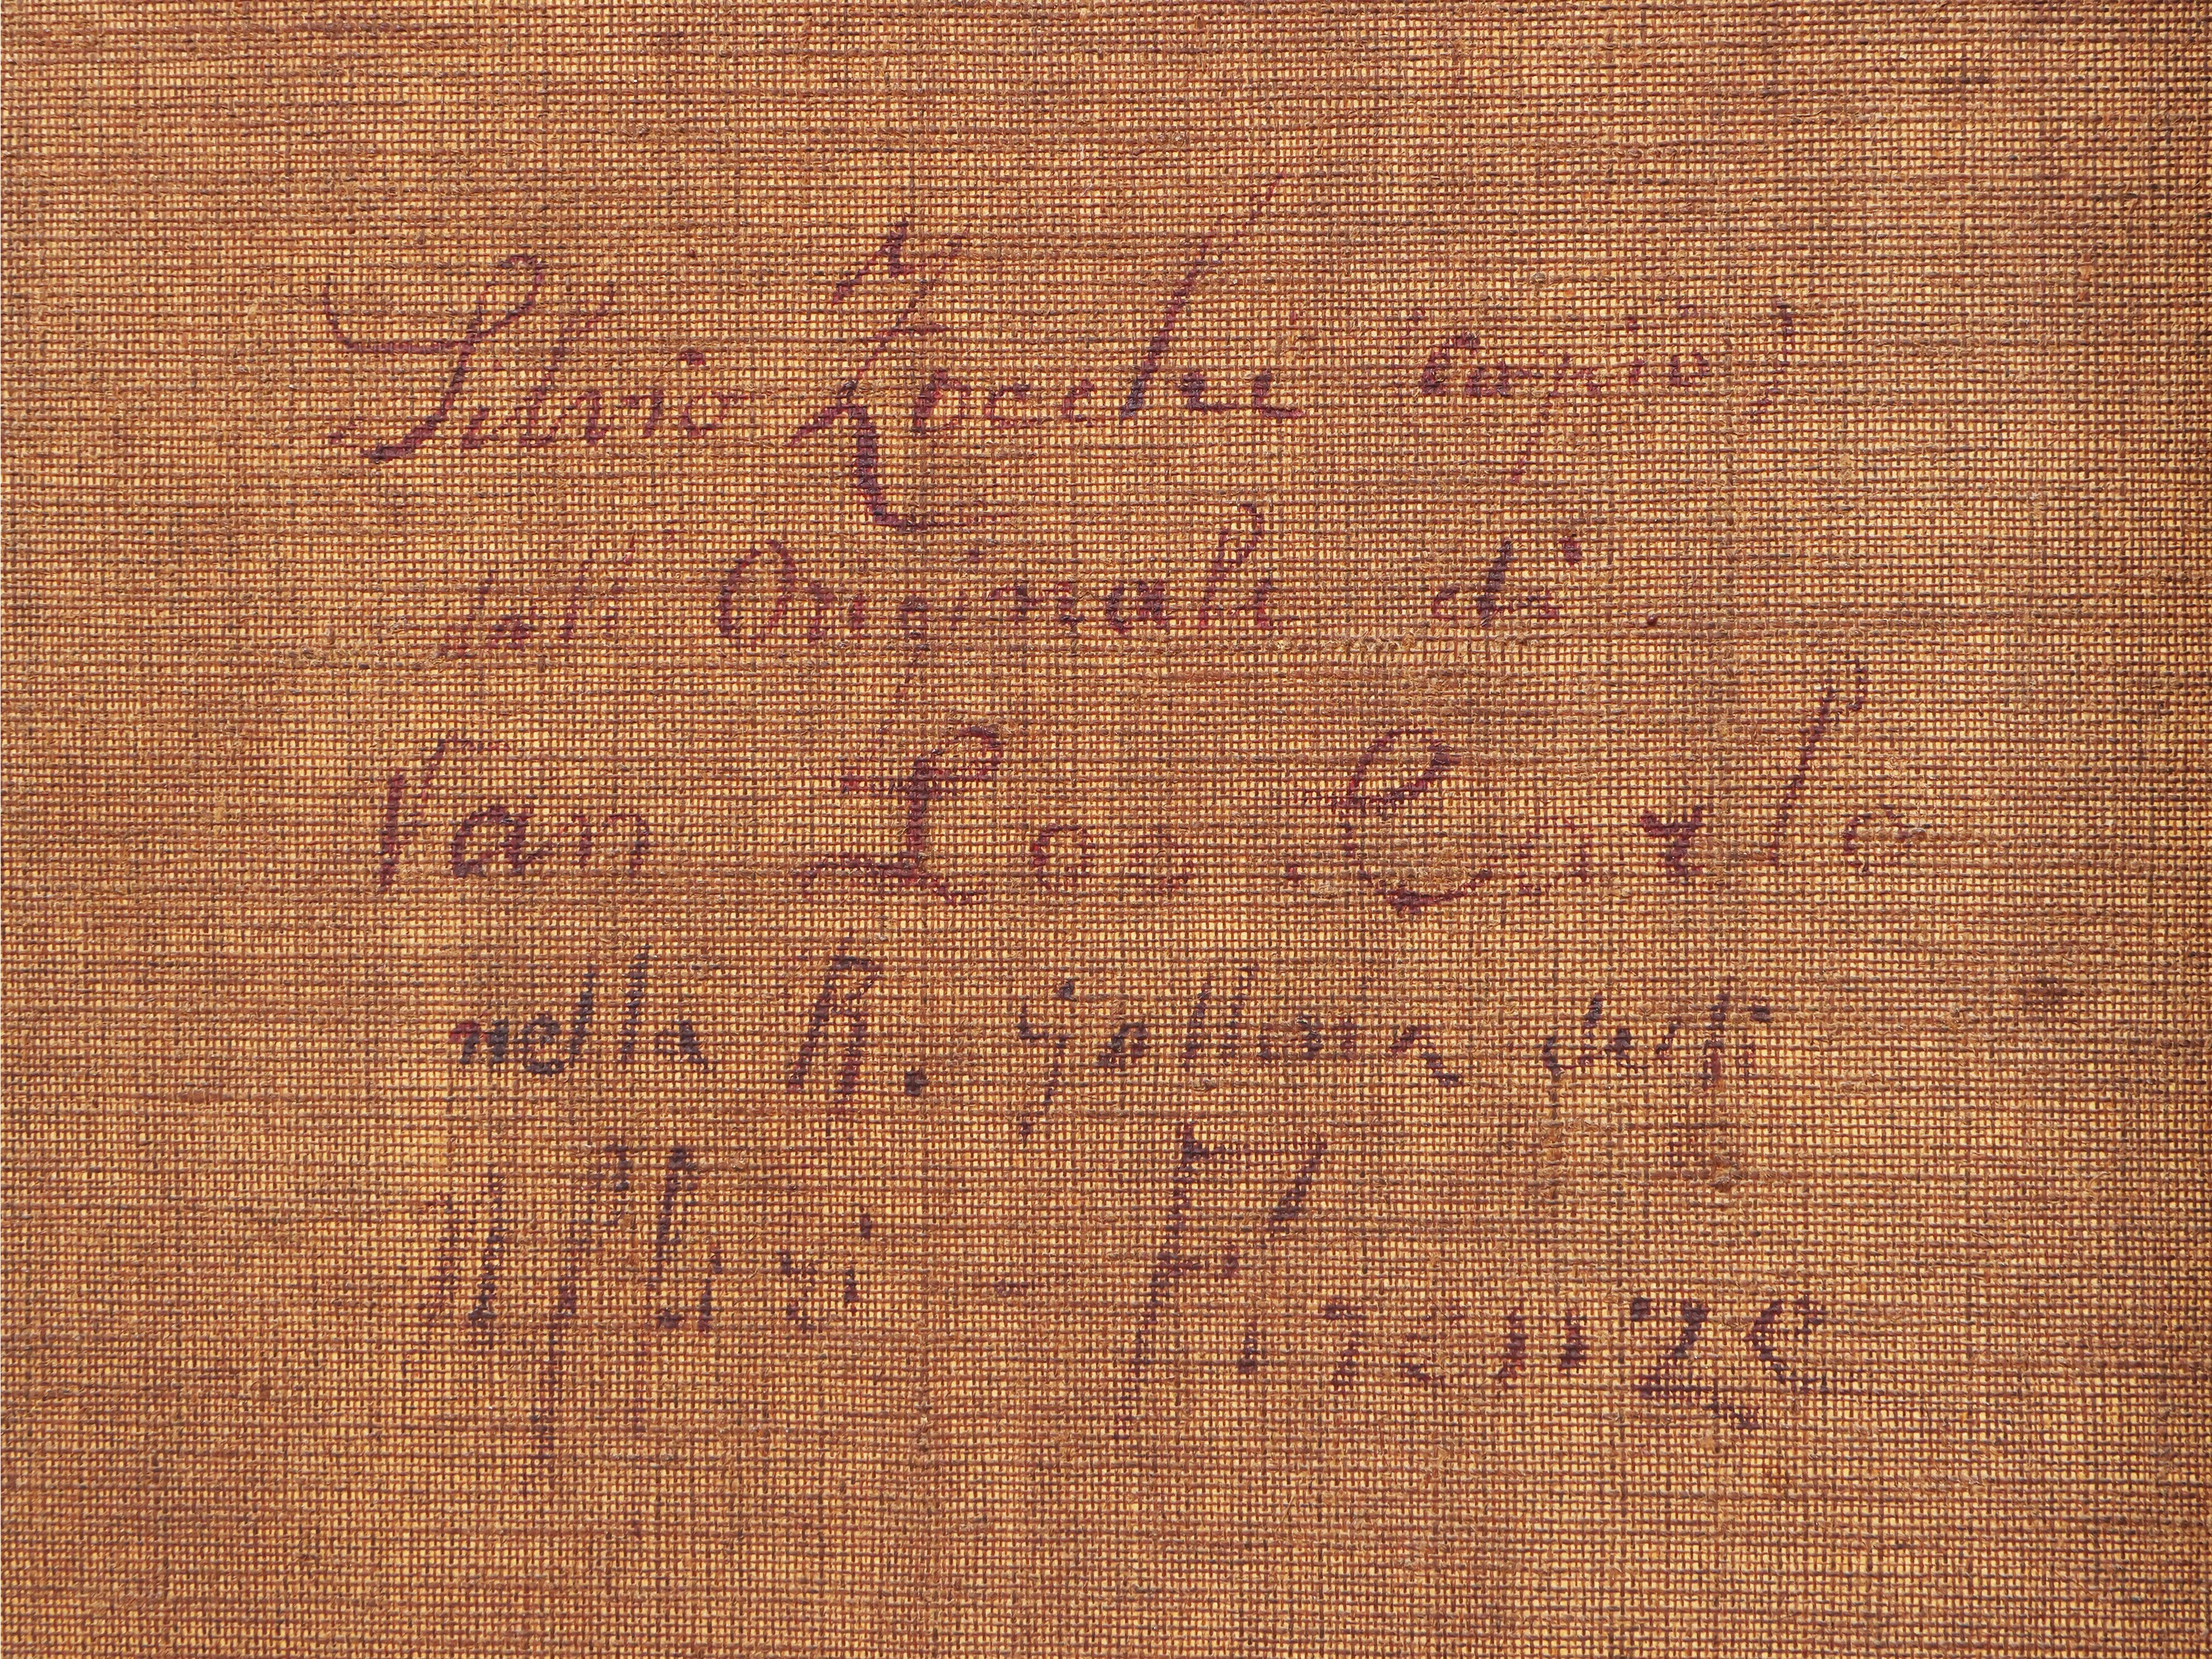 Silvio Zocchi copiò
dal' Originale di
Van Loo. Carlo
nella R. Galleria degli
Uffizi - Firenze